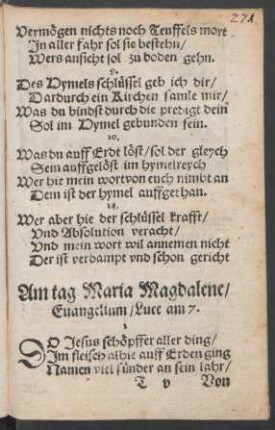 271
Vermögen nichts noch Teuffels mort
In aller fahr sol sie bestehn/
Wers ansicht sol zu boden gehn.
9.
Des Hymels schlüssel geb ich dir/
Dardurch ein Kirchen samle mir/
Was du bindst durch die predigt dein
Sol im Hymel gebunden sein.
10.
Was du auff Erdt löst/sol der gleych
Sein auffgelöst im hymelreych
Wer hie mein wort von euch nimbt an
Dem ist der hymel auffgethan.
Wer aber hie der schlüssel krafft/
Vnd Absolution veracht/
Vnd mein wort wil annemen nicht
Der ist verdampt vnd schon gericht
Am tag Maria Magdalene/
Euangelium/Luce am 7.
1
DO Jesus schöpffer aller ding/
Im fleisch alhie auff Erden ging
Namen viel sünder an sein lahr/
T v Von